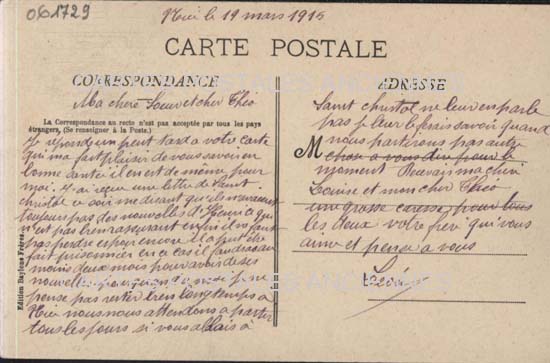 061729
Nice le 19 mars 1915
CARTE POSTALE
CORRESPONDANCE
ADRESSE
Ma chère Soeur et cher Théo
La Correspondance au recto n'est pas acceptée par tous les pays
étrangers, (Se renseigner à la Poste.)
Je répond un peut tard a votre carte
qui ma fait plaisir de vous savoir en
bonne santé il en est de même pour
moi. J'ai reçue une lettre de Saint
christol ce soir me disant qu'ils
toujours pas des nouvelles d' ce qui
n'est pas bien rassurant enfin il ne faut
pas perdre espoir encore il a peut être
fait prisonnier en ce cas il faudra au
moins deux mois pour avoir de ses
nouvelles je ne
pense pas rester bien longtemps à
Nice nous nous attendons a partir
tous les jours si vous allais à
Saint christol ne leur en parle
pas je leur ferais savoir quand
nous partirons pas autre
M
chose a vous dire pour le
moment Reçevais ma chère
Louise et mon cher Théo
une grosse caresse pour tous
les deux votre frère qui vous
aime et pense a vous
Edition Baylone Frères